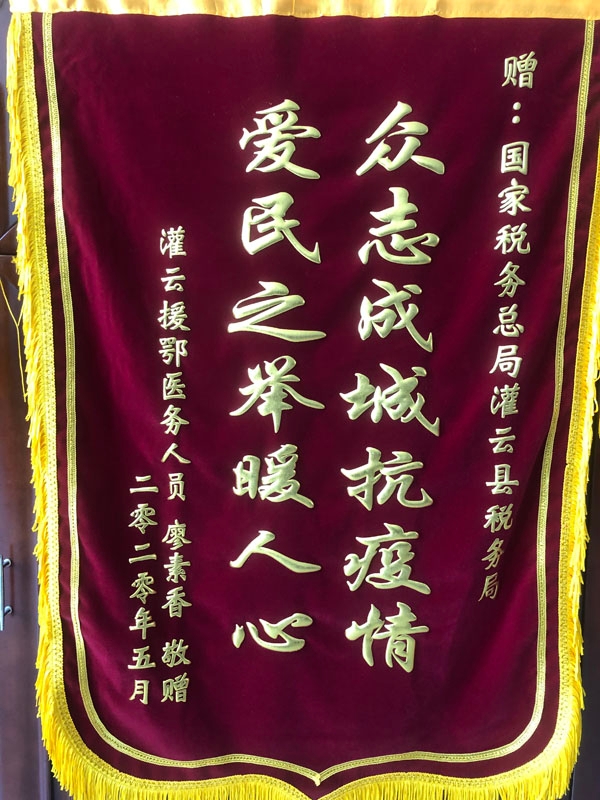 赠：国家税务总局灌云县税务局
众志成城抗疫情
爱民之举暖人心
灌云援鄂医务人员 廖素香 敬赠
二零二零年五月